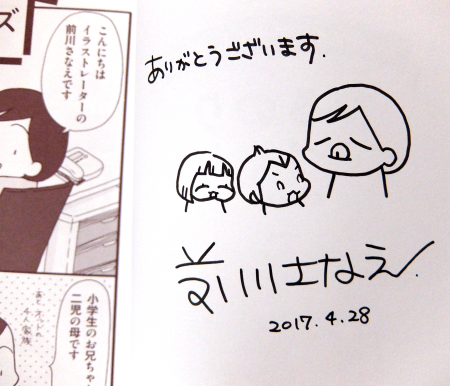 ズ
こんにちは
イラストレーターの
前川さなえです
小学生のお兄ちゃ
二児の母です
あと オットの
4人家族
ありがとうございます.
前川さなえ
2017.4.28